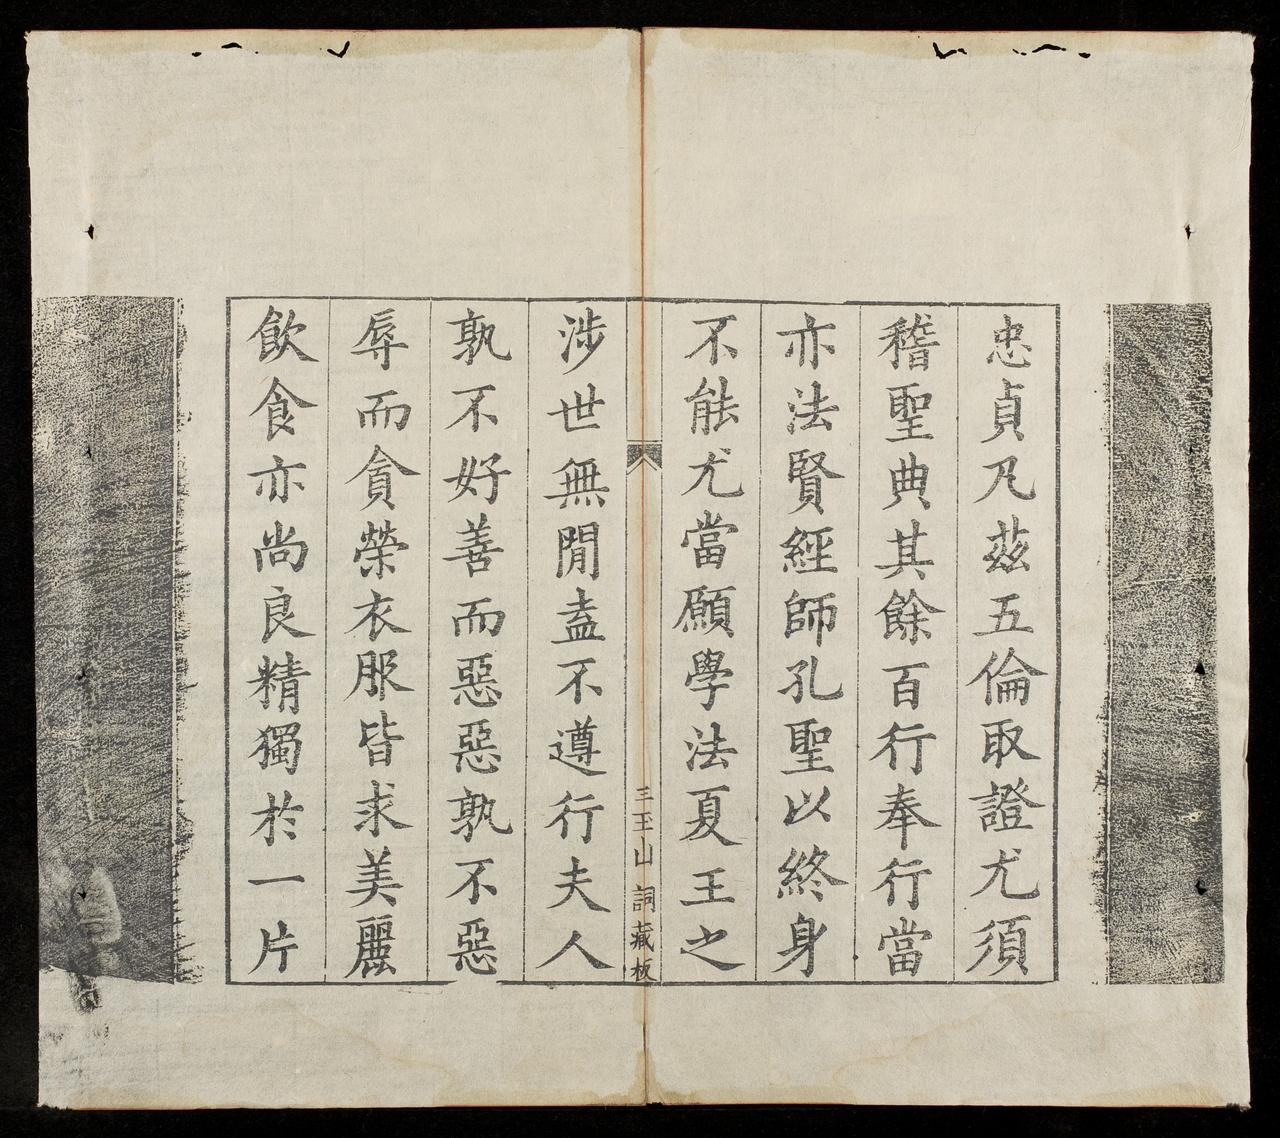 忠貞乃茲五倫取證尤須
稽聖典其餘百行奉行當
亦法賢經師孔聖以終身
不能尤當願學法夏王之
三王山詞藏板
涉世無閒盍不遵行夫人
孰不好善而惡惡孰不惡
辱而貪榮衣服皆求美麗
飲食亦尚良精獨於一片